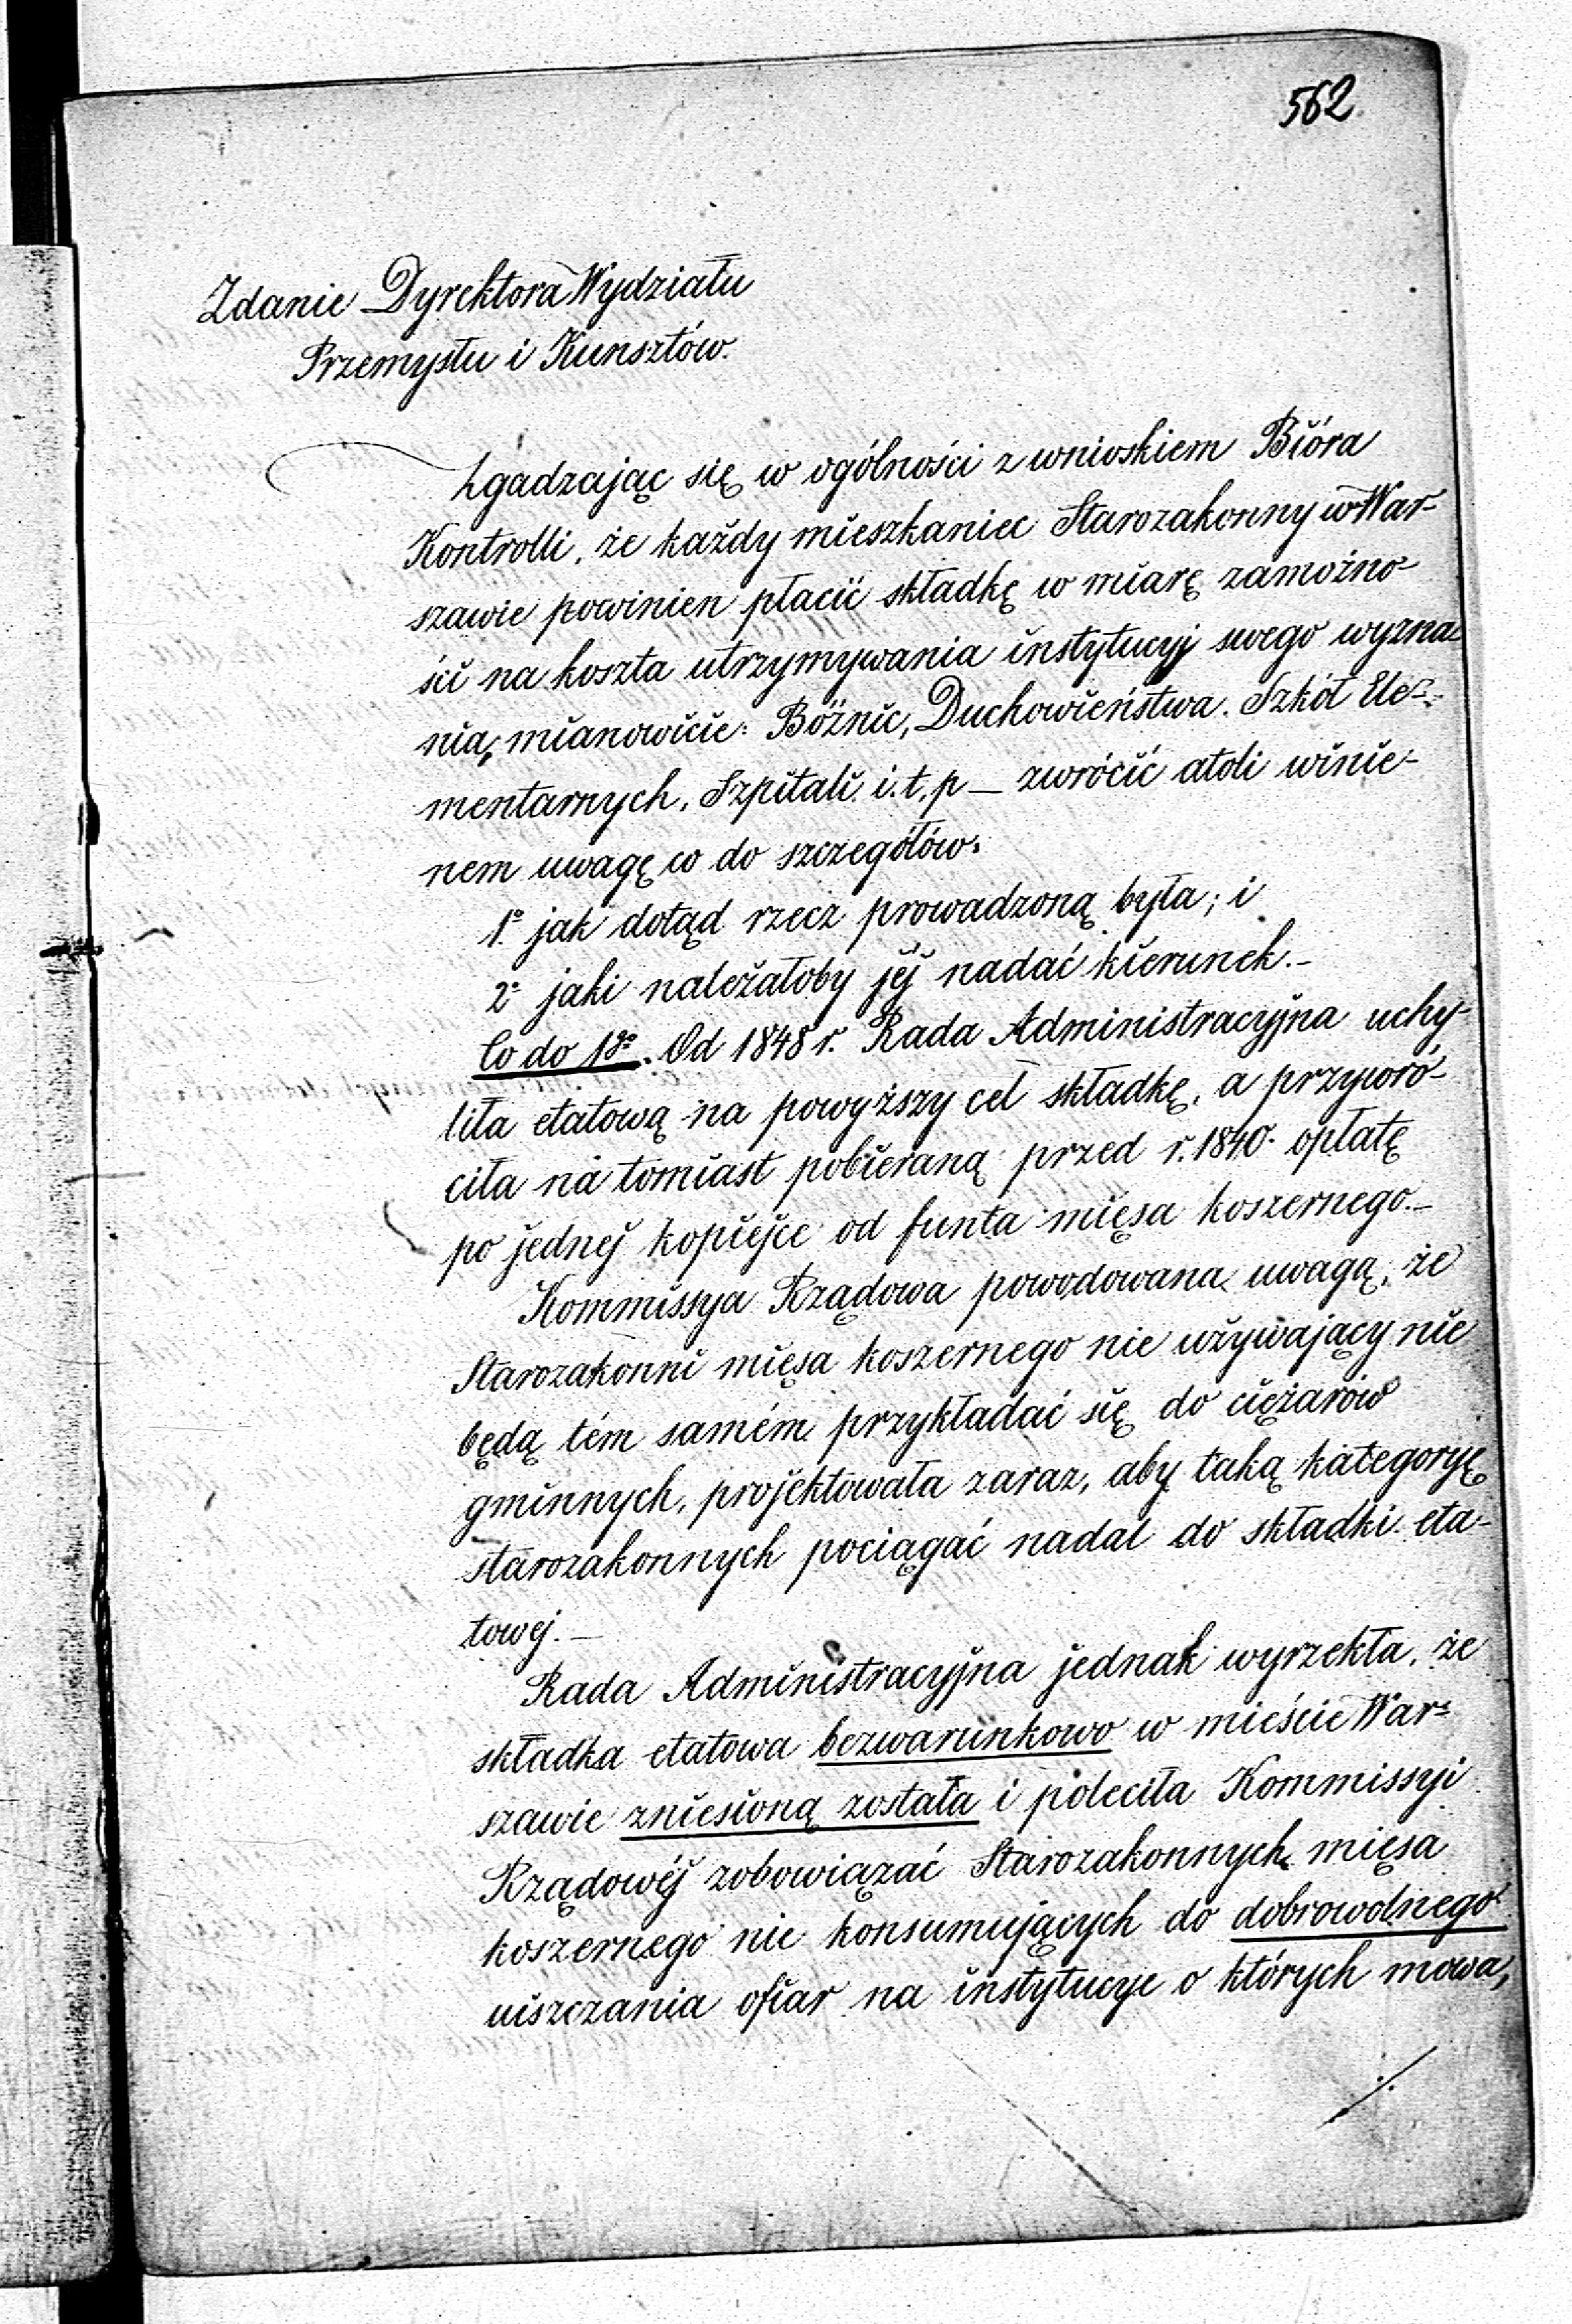 562
Zdanie Dyrektora Wydziału
Przemysłu i Kunsztów.
Zgadzając się w ogólności z wnioskiem Bióra
Kontrolli, że każdy mieszkaniec Starozakonny w War-
szawie powinien płacić składkę w miarę zamożno-
ści na koszta utrzymywania instytucyj swego wyzna-
nia, mianowicie: Bóżnic, Duchowieństwa. Szkół Ele-
mentarnych, Szpitali. i. t. p — zwrócić atoli winie-
nem uwagę co do szczegółów:
1.° jak dotąd rzecz prowadzoną była; i
2° jaki należałoby jéj nadać kierunek.—
Co do 1go. Od 1848 r. Rada Administracyjna uchy-
liła etatową na powyższy cel składkę, a przywró-
ciła natomiast pobieraną przed r. 1840. opłatę
po jednéj kopiejce od funta mięsa koszernego.—
Kommissya Rządowa powodowana uwagą, że
Starozakonni mięsa koszernego nie używający nie
będą tém samém przykładać się do ciężarów
gminnych, projektowała zaraz, aby taką kategoryę
starozakonnych pociągać nadal do składki eta-
towej.—
Rada Administracyjna jednak wyrzekła, że
składka etatowa bezwarunkowo w mieście War-
szawie zniesioną została i poleciła Kommissyi
Rządowéj zobowiązać Starozakonnych mięsa
koszernego nie konsumujących do dobrowolnego
uiszczania ofiar na instytucye o których mowa,
./.